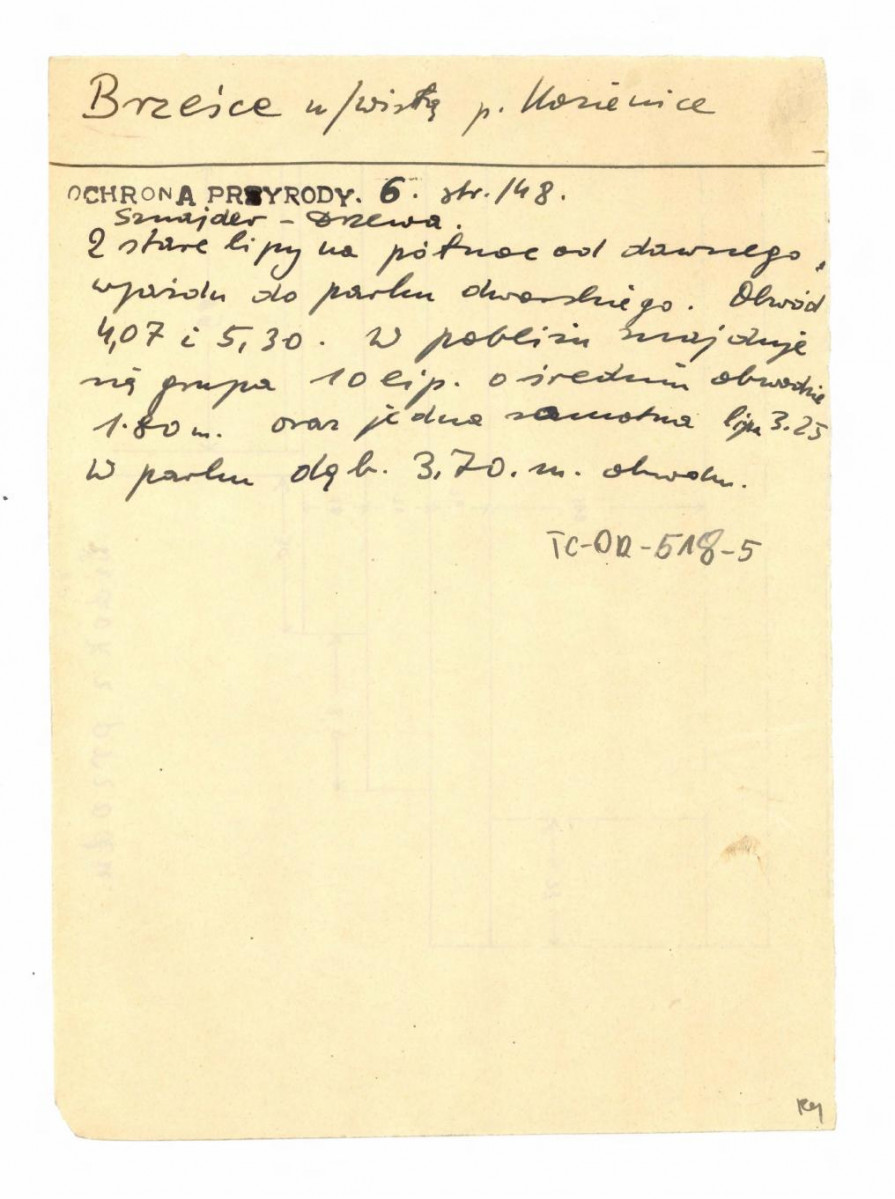 Brześce n/wisłą p. Kozienice
OCHRONA PRZYRODY. 6. str. 148.
Sznajder - Drzewa.
2 stare lipy na północ od dawnego
wjazdu do parku dworskiego. Obwód
4,07 i 5,30. W pobliżu znajduje
się grupa 10 lip. o średnim obwodzie
1.80 m. oraz jedna samotna lipa 3.25
W parku dąb. 3,70. m. obwodu.
TC-OD-518-5